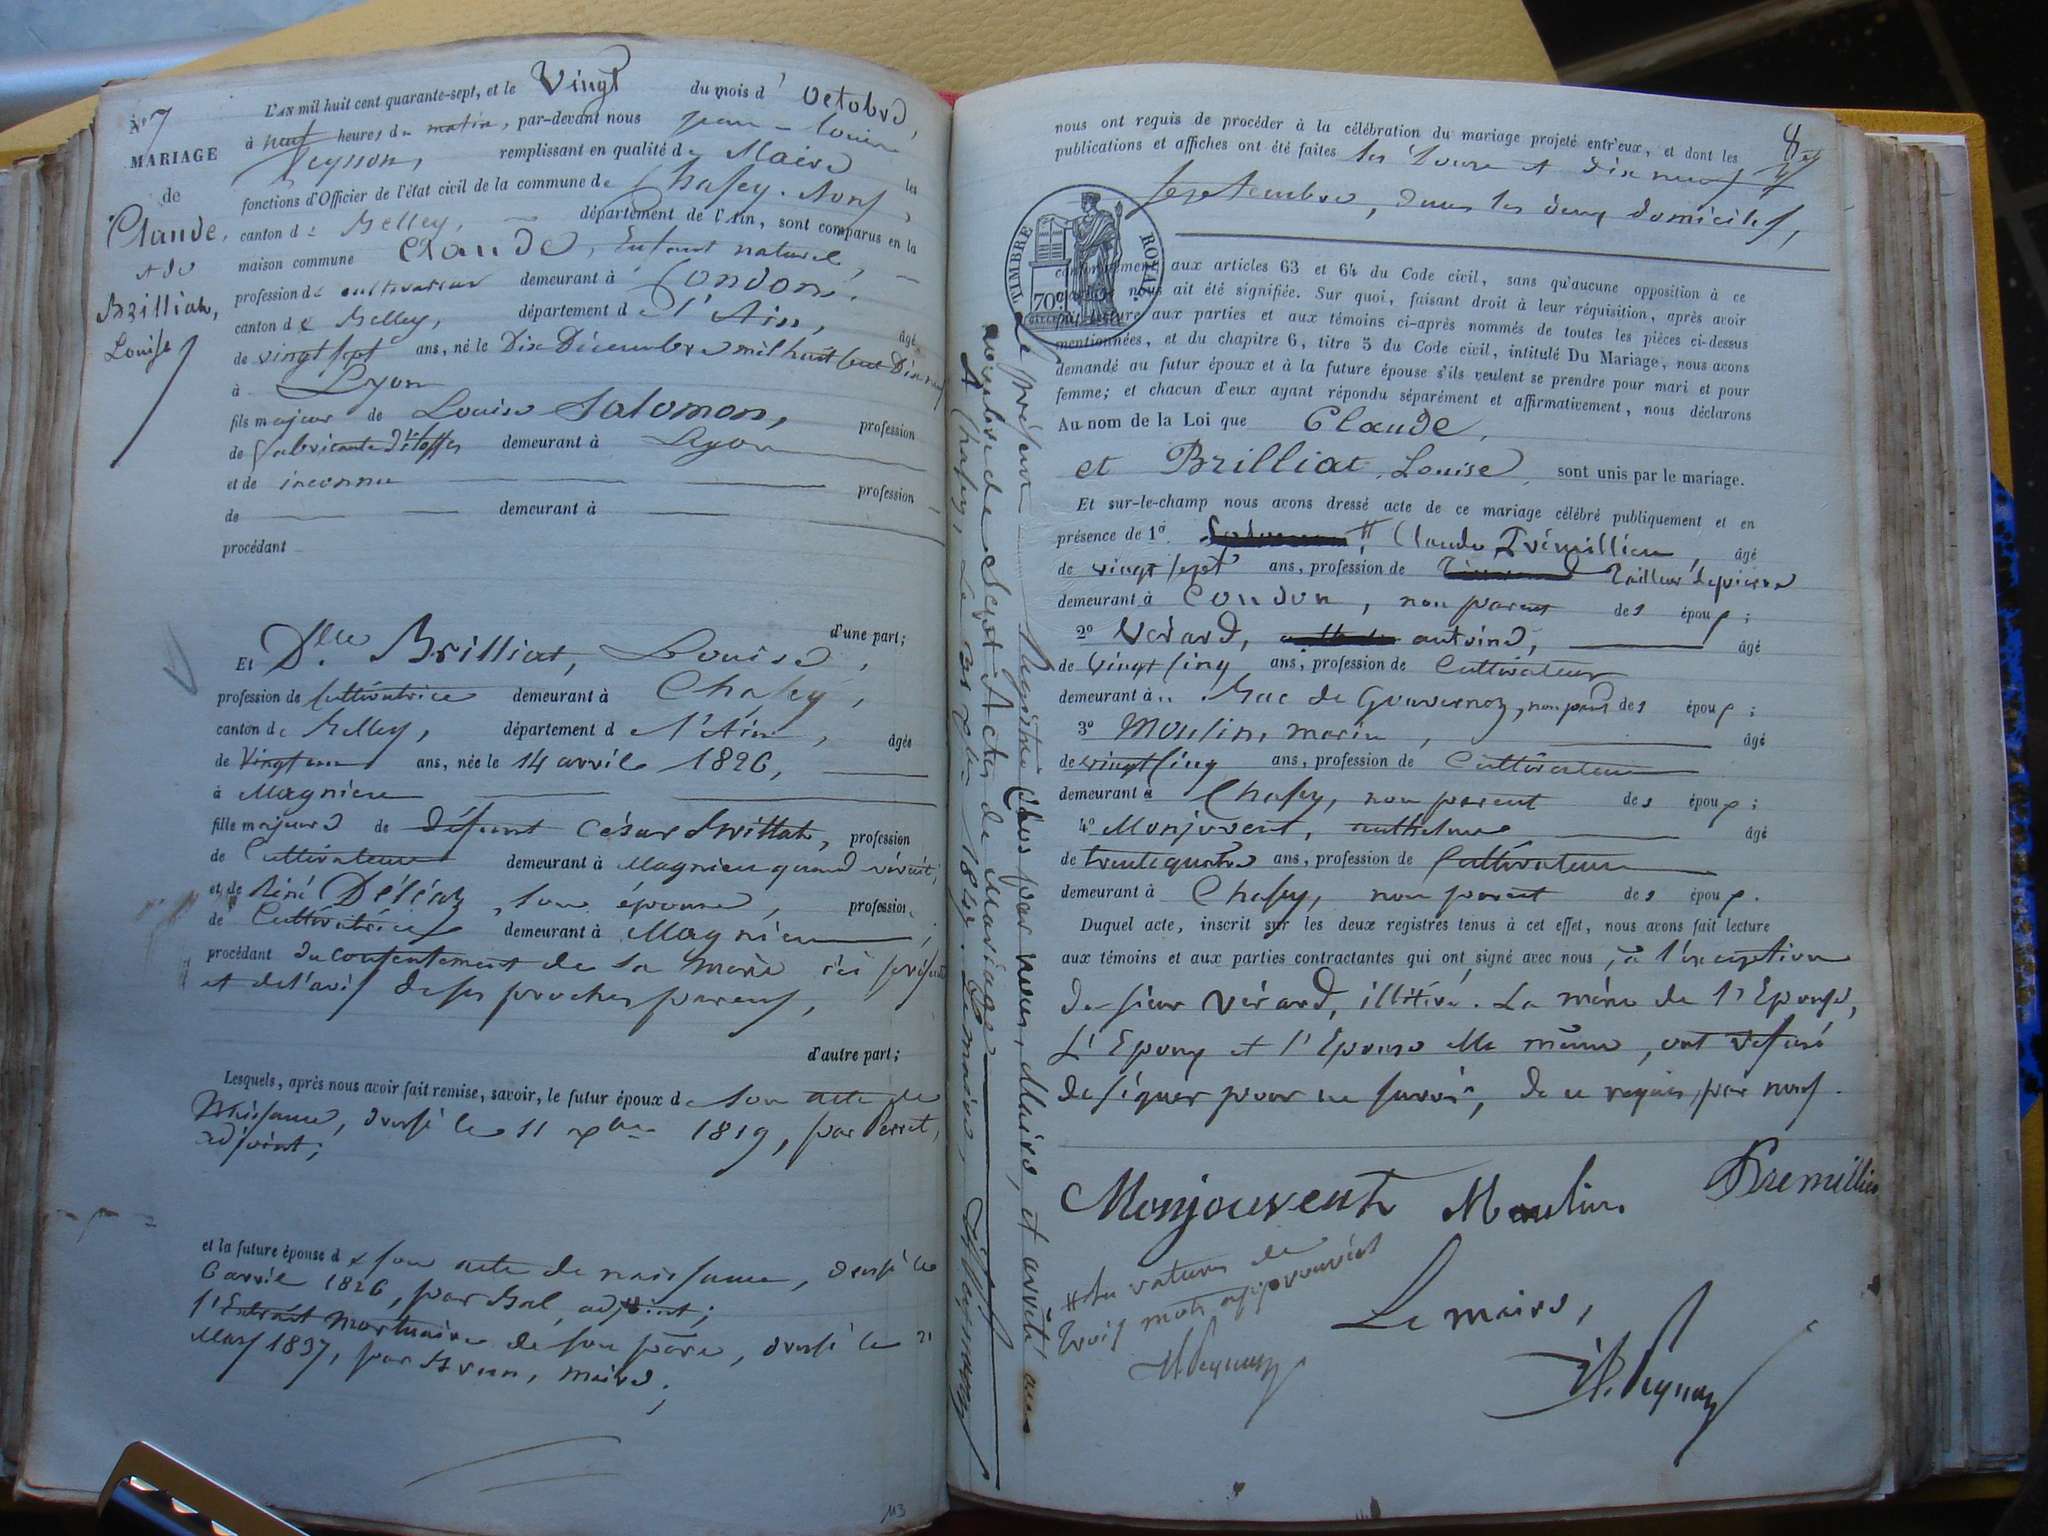 N° 7
MARIAGE
de
Claude,
et de
Brilliat,
Louise
L'AN mil huit cent quarante-sept, et le Vingt du mois d' octobre,
à huit heures du matin, par-devant nous jean-louis
Peysson, remplissant en qualité de Maire les
fonctions d'Officier de l'état civil de la commune de Chasey-Bons,
canton de Belley, département de l'Ain, sont comparus en la
maison commune Claude, Enfant naturel,
profession de cultivateur demeurant à Condon,
canton de Belley, département d l'Ain, âgé
de vingt sept ans, né le Dix Décembre mil huit cent Dix neuf
à Lyon
fils majeur de Louise Salomon, profession
de fabricante d'étoffes demeurant à Lyon
et de inconnu profession
de demeurant à
procédant
d'une part;
Et Dlle Brilliat, Louise,
profession de cultivatrice demeurant à Chasey,
canton de Belley, département d l'Ain, âgée
de Vingt un ans, née le 14 avril 1826,
à Magnieu
fille majeure de défunt César Brilliat, profession
de Cultivateur demeurant à Magnieu quand vivait,
et de Déléaz, son épouse, profession
de Cultivatrice demeurant à Magnieu,
procédant du consentement de sa mère ici présente
et de l'avis de ses proches parens,
d'autre part;
Lesquels, après nous avoir fait remise, savoir, le futur époux de son acte de
Naissance, dressé le 11 xbre 1819, par Perret,
adjoint;
et la future épouse d e son acte de naissance, dressé le
6 avril 1826, par Bal, adjoint;
l'Extrait mortuaire de son père, dressé le 21
Mars 1837, par Brun, maire;
113
Le présent Registre Clos par nous, Maire, et arrêté au
nombre de Sept Actes de Mariage
A Chasey, le 31 xbre 1847. Le maire,
8
nous ont requis de procéder à la célébration du mariage projeté entr'eux, et dont les
publications et affiches ont été faites les Douze et dix neuf
septembre, dans les deux domiciles,
TIMBRE ROYAL
70c
conformément aux articles 63 et 64 du Code civil, sans qu'aucune opposition à ce
mariage nous ait été signifiée. Sur quoi, faisant droit à leur réquisition, après avoir
fait lecture aux parties et aux témoins ci-après nommés de toutes les pièces ci-dessus
mentionnées, et du chapitre 6, titre 5 du Code civil, intitulé Du Mariage, nous avons
demandé au futur époux et à la future épouse s'ils veulent se prendre pour mari et pour
femme; et chacun d'eux ayant répondu séparément et affirmativement, nous déclarons
Au nom de la Loi que Claude,
et Brilliat, Louise, sont unis par le mariage.
Et sur-le-champ nous avons dressé acte de ce mariage célébré publiquement et en
présence de 1° # Claude Trémillieu, âgé
de vingt sept ans, profession de Tailleur de pierre
demeurant à Condon, non parent des époux;
2° Vérard, antoine, âgé
de vingt cinq ans, profession de Cultivateur
demeurant à Bac de Gouvernoz, non parent des époux;
3° Moulin, marin, âgé
de vingt cinq ans, profession de Cultivateur
demeurant à Chasey, non parent des époux;
4° Monjouvent, anthelme âgé
de trente quatre ans, profession de Cultivateur
demeurant à Chasey, non parent des époux.
Duquel acte, inscrit sur les deux registres tenus à cet effet, nous avons fait lecture
aux témoins et aux parties contractantes qui ont signé avec nous, à l'exception
de sieur Vérard, illitéré. La mère de l'Epouse,
L'Epoux et l'Epouse elle même, ont refusé
de signer pour ne savoir, de ce requis par nous.
Monjouvent Moulin Tremillieu
# La rature de
trois mots approuvée
Le maire,